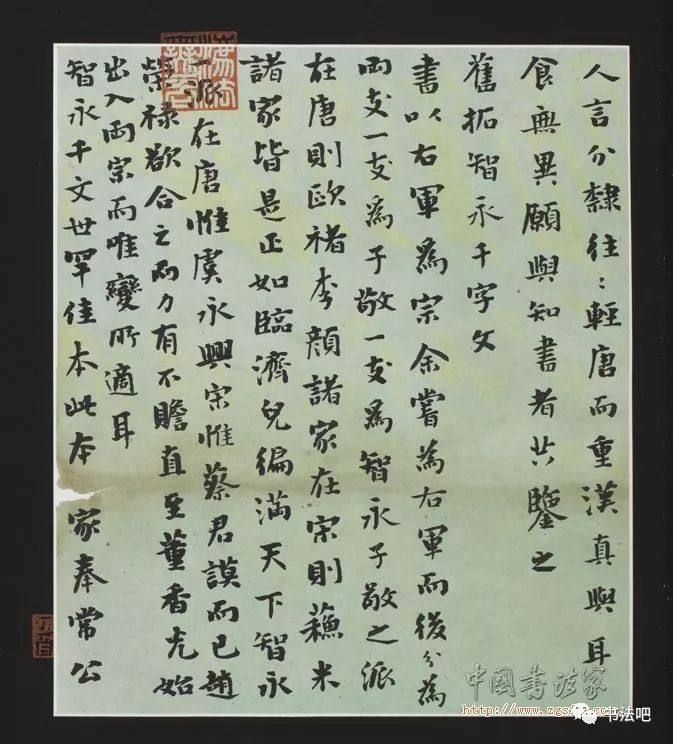 人言分隸往〻輕唐而重漢真與耳
食無異願與知書者共鑒之
舊拓智永千字文
書以右軍為宗余嘗為右軍而後分為
兩支一支為子敬一支為智永子敬之派
在唐則歐褚李顏諸家在宋則蘇米
諸家皆是正如臨濟兒徧滿天下智永
一派在唐惟虞永興宋惟蔡君謨而已趙
榮祿欲合之而力有不贍直至董香光始
出入兩宗而唯變所適耳
智永千文世罕佳本此本 家奉常公
中國書法家
http://www.zgsf
书法吧